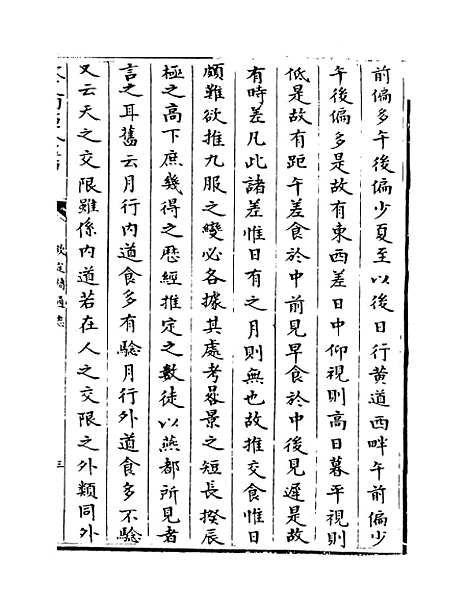 前偏多午後偏少夏至以後日行黄道西畔午前偏少
午後偏多是故有東西差日中仰視則高日暮平視則
低是故有距午差食於中前見早食於中後見遲是故
有時差凡此諸差惟日有之月則無也故推交食惟日
頗難欲推九服之變必各據其處考晷景之短長揆辰
極之高下庶幾得之厯經推定之數徒以燕都所見者
言之耳舊云月行内道食多有驗月行外道食多不驗
又云天之交限雖係内道若在人之交限之外類同外
欽定續通志
三